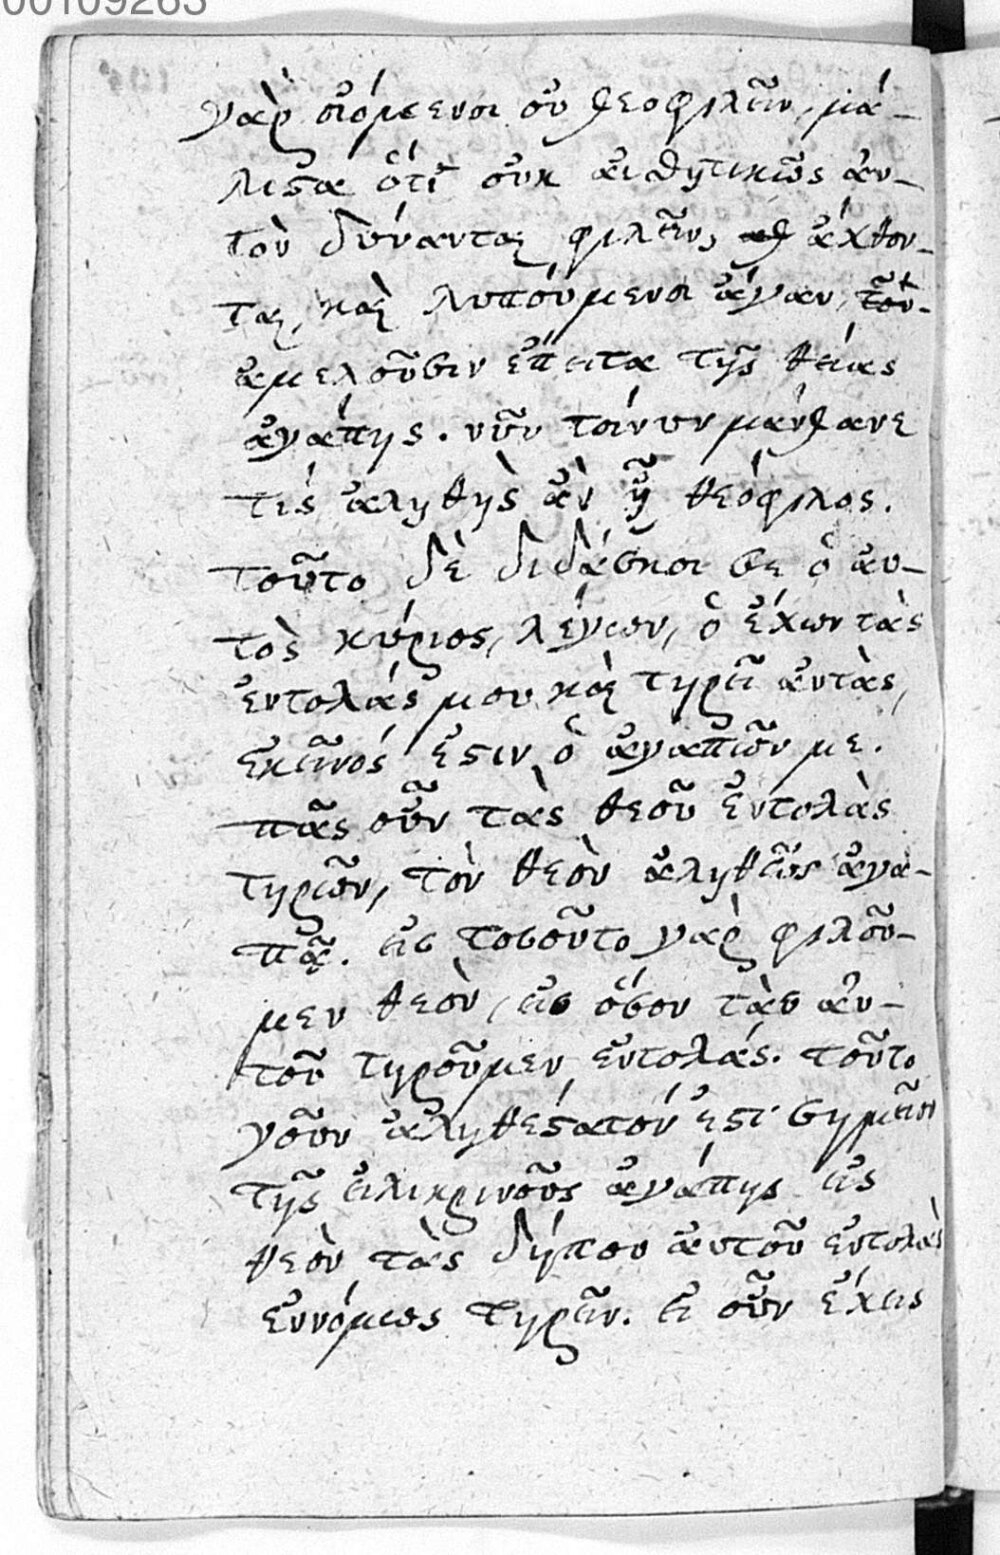 00109263
γὰρ οἰόμενοι οὐ θεοφιλεῖν, μά-
λιστα ὅτι οὐκ αἰσθητικῶς αὐ-
τὸν δύνανται φιλεῖν, ἄχθον-
ται, καὶ λυπούμενοι ἄγαν,
ἀμελοῦσιν ἔπειτα τῆς θείας
ἀγάπης. νῦν τοίνυν μάνθανε
τίς ἀληθὴς ἂν ᾖ θεόφιλος.
τοῦτο δὲ διδάσκοι σε ὁ αὐ-
τὸς κύριος, λέγων, ὁ ἔχων τὰς
ἐντολάς μου καὶ τηρεῖ αὐτὰς,
ἐκεῖνός ἐστιν ὁ ἀγαπῶν με.
πᾶς οὖν τὰς θεοῦ ἐντολὰς
τηρῶν, τὸν θεὸν ἀληθῶς ἀγα-
πᾷ. εἰς τοσοῦτο γὰρ φιλοῦ-
μεν θεὸν, εἰς ὅσον τὰς αὐ-
τοῦ τηροῦμεν ἐντολάς. τοῦτο
γοῦν ἀληθέστατόν ἐστι σημεῖον
τῆς εἰλικρινοῦς ἀγάπης εἰς
θεὸν τὰς δήπου αὐτοῦ ἐντολὰς
ἐννόμως τηρεῖν. εἰ οὖν ἔχεις